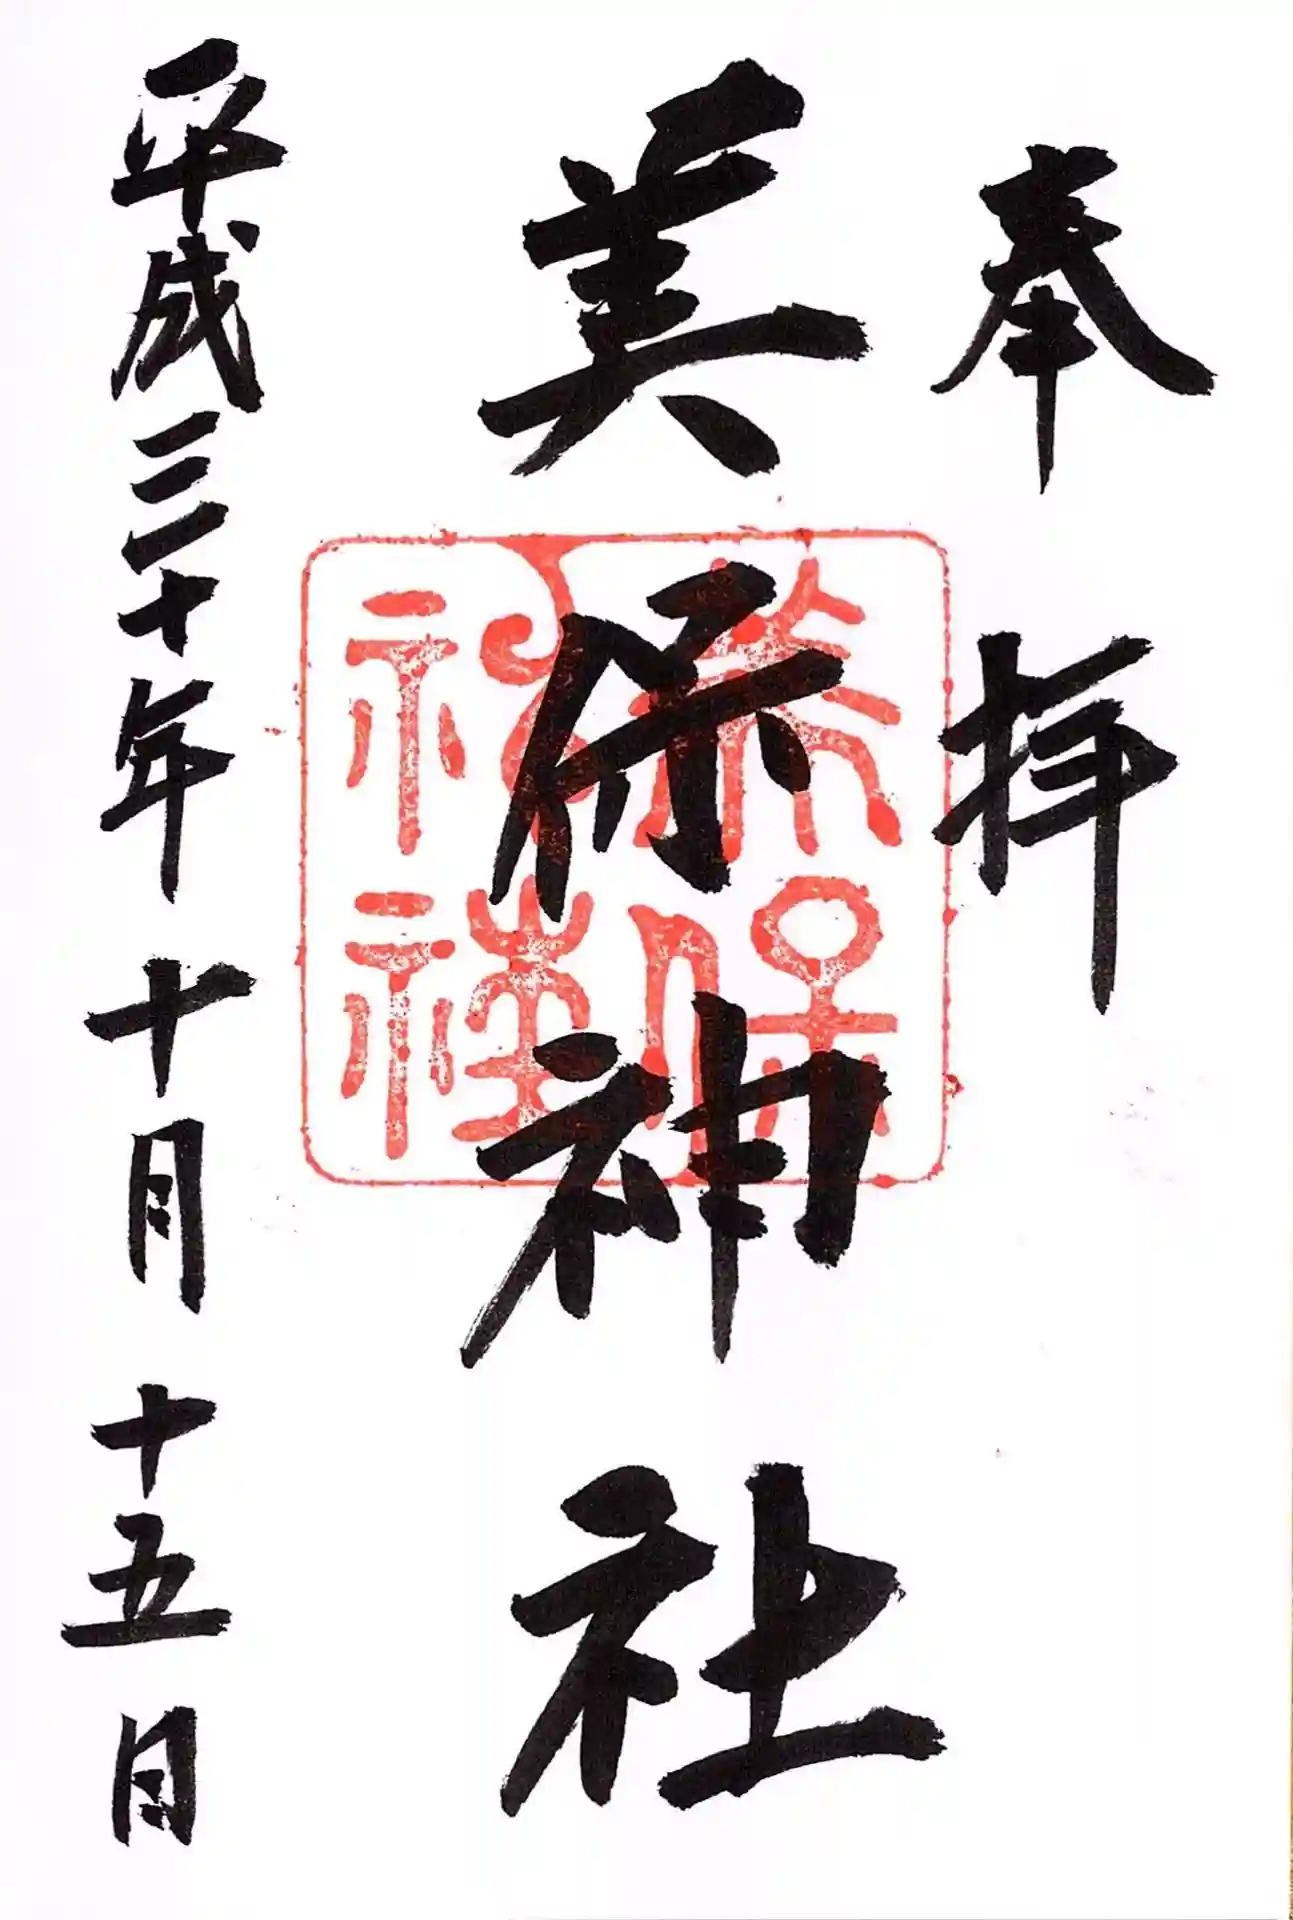 奉拝
美保神社
平成三十年十月十五日